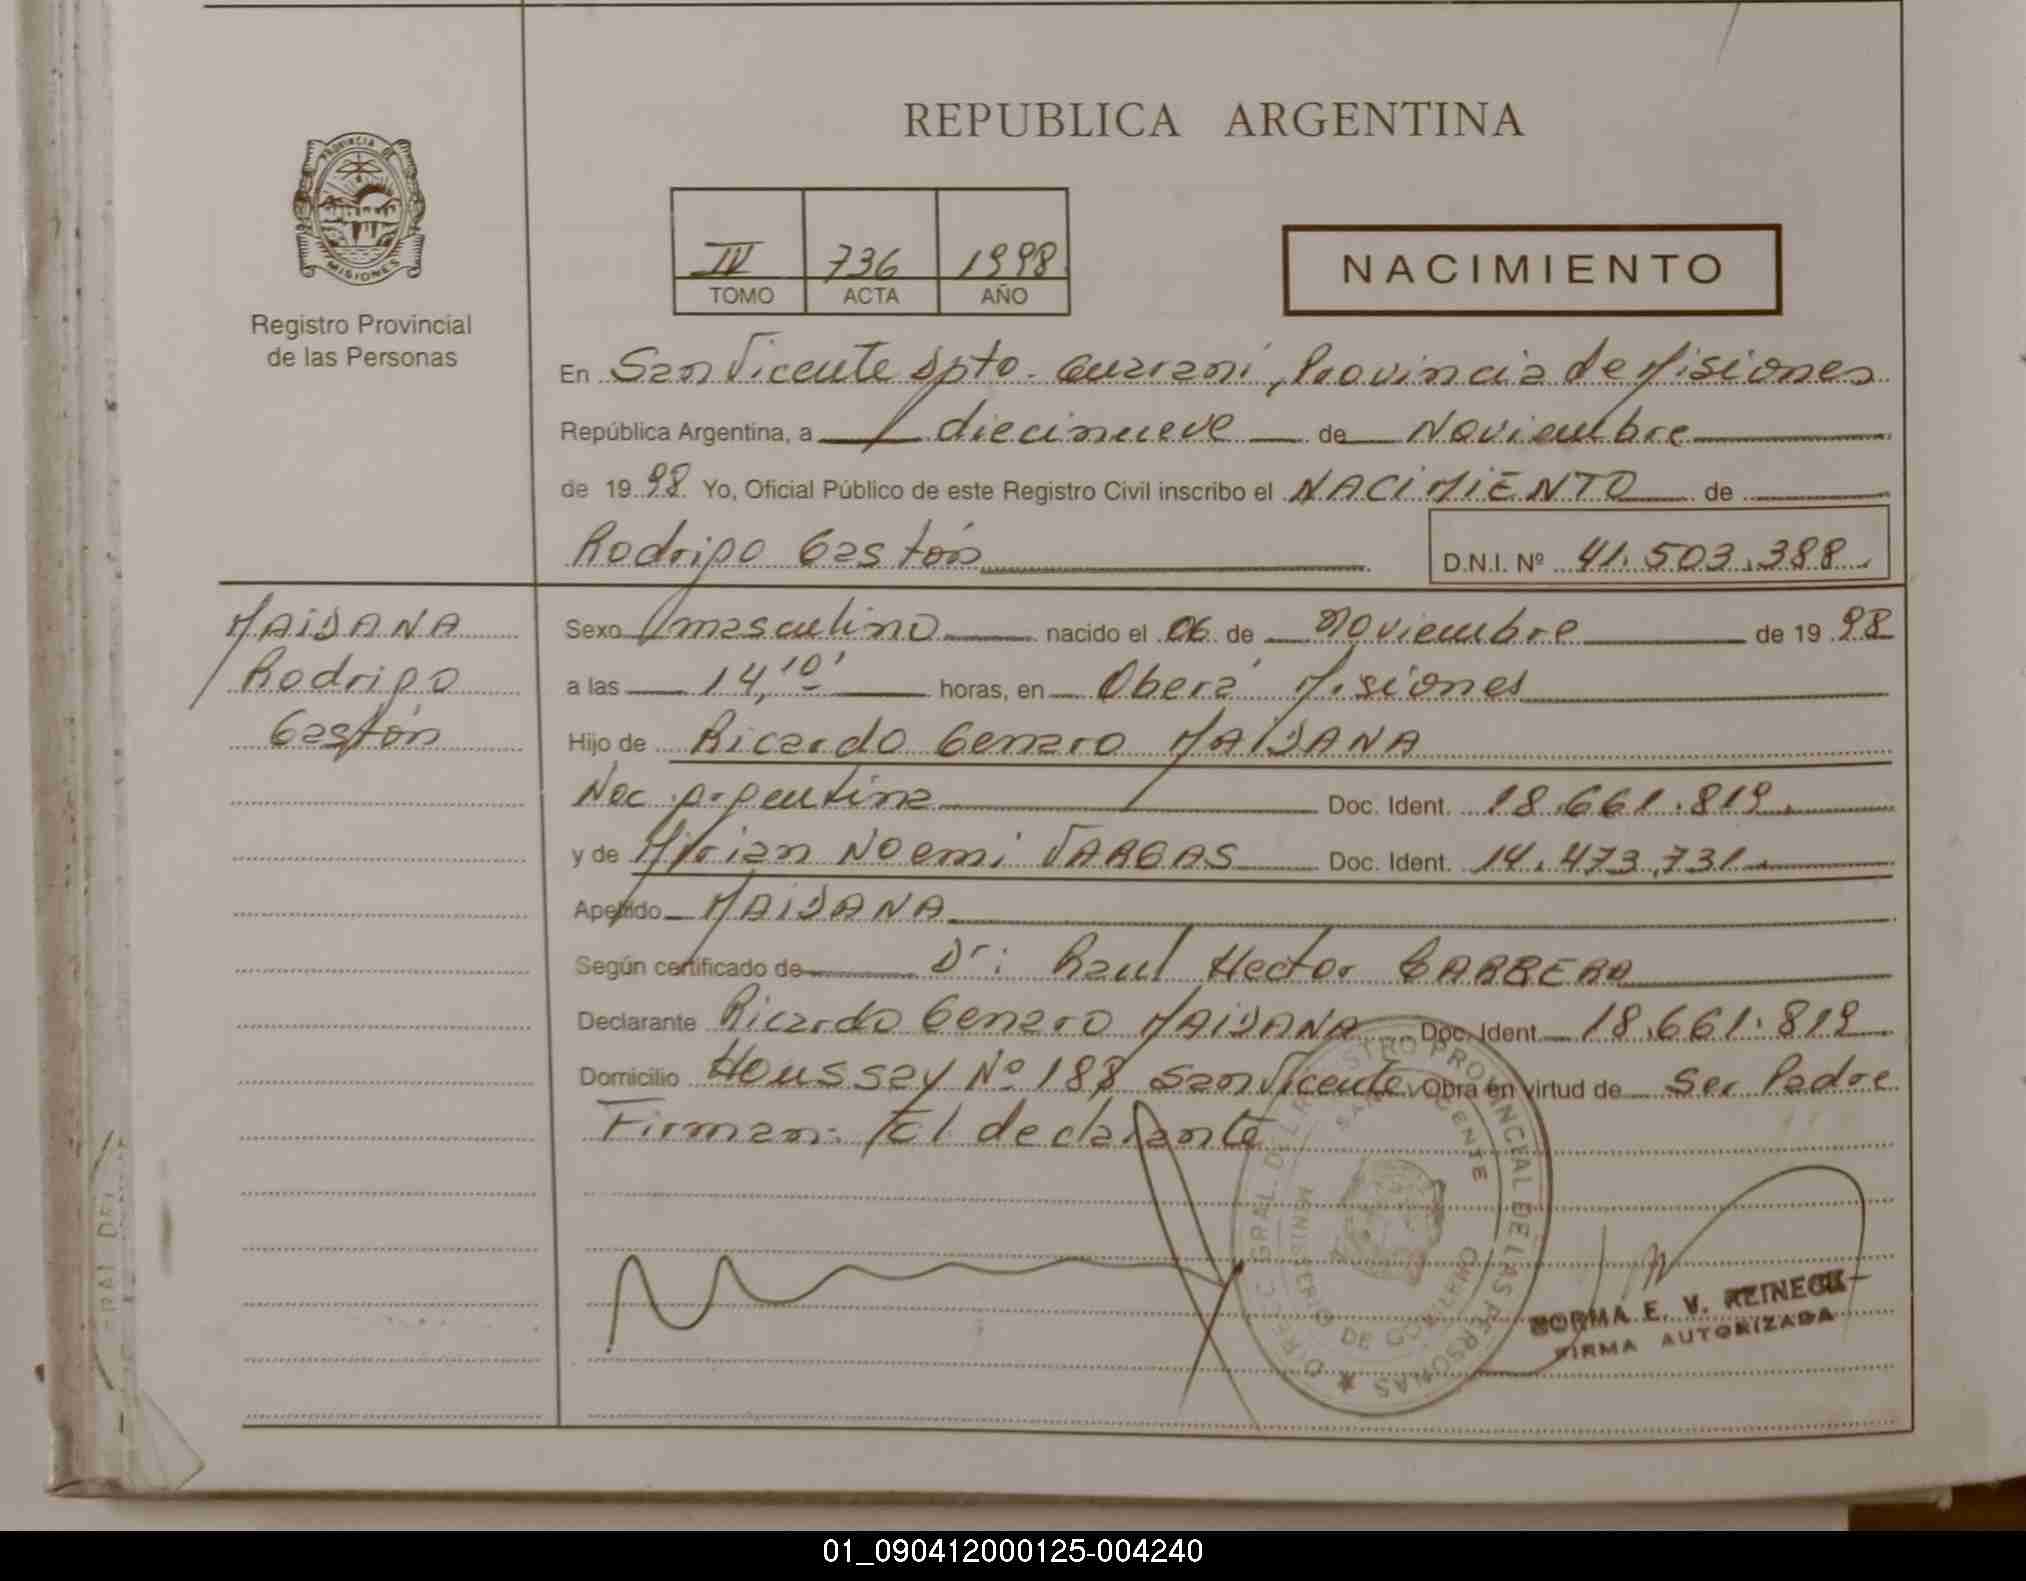 REPUBLICA ARGENTINA
PROVINCIA DE
MISIONES
Registro Provincial
de las Personas
IV 736 1998
TOMO ACTA AÑO
NACIMIENTO
En San Vicente Dpto. Guaraní, Provincia de Misiones
República Argentina, a diecinueve de Noviembre
de 1998 Yo, Oficial Público de este Registro Civil inscribo el NACIMIENTO de
Rodrigo Gastón D.N.I. Nº 41.503.388
MAIDANA
Rodrigo
Gastón
Sexo masculino nacido el 06 de Noviembre de 1998
a las 14,10' horas, en Oberá Misiones
Hijo de Ricardo Genaro MAIDANA
Nac. argentina Doc. Ident. 18.661.819.
y de Mirian Noemí VARGAS Doc. Ident. 14.473.731.
Apellido MAIDANA
Según certificado de Dr: Raul Hector CABRERA
Declarante Ricardo Genaro MAIDANA Doc. Ident. 18.661.819
Domicilio Houssay Nº 188 San Vicente Obra en virtud de Ser Padre
Firman: El declarante
DIREC. GRAL. DEL REGISTRO PROVINCIAL DE LAS PERSONAS
SAN VICENTE
MINISTERIO DE GOBIERNO
NORMA E. V. REINECK
FIRMA AUTORIZADA
01_090412000125-004240